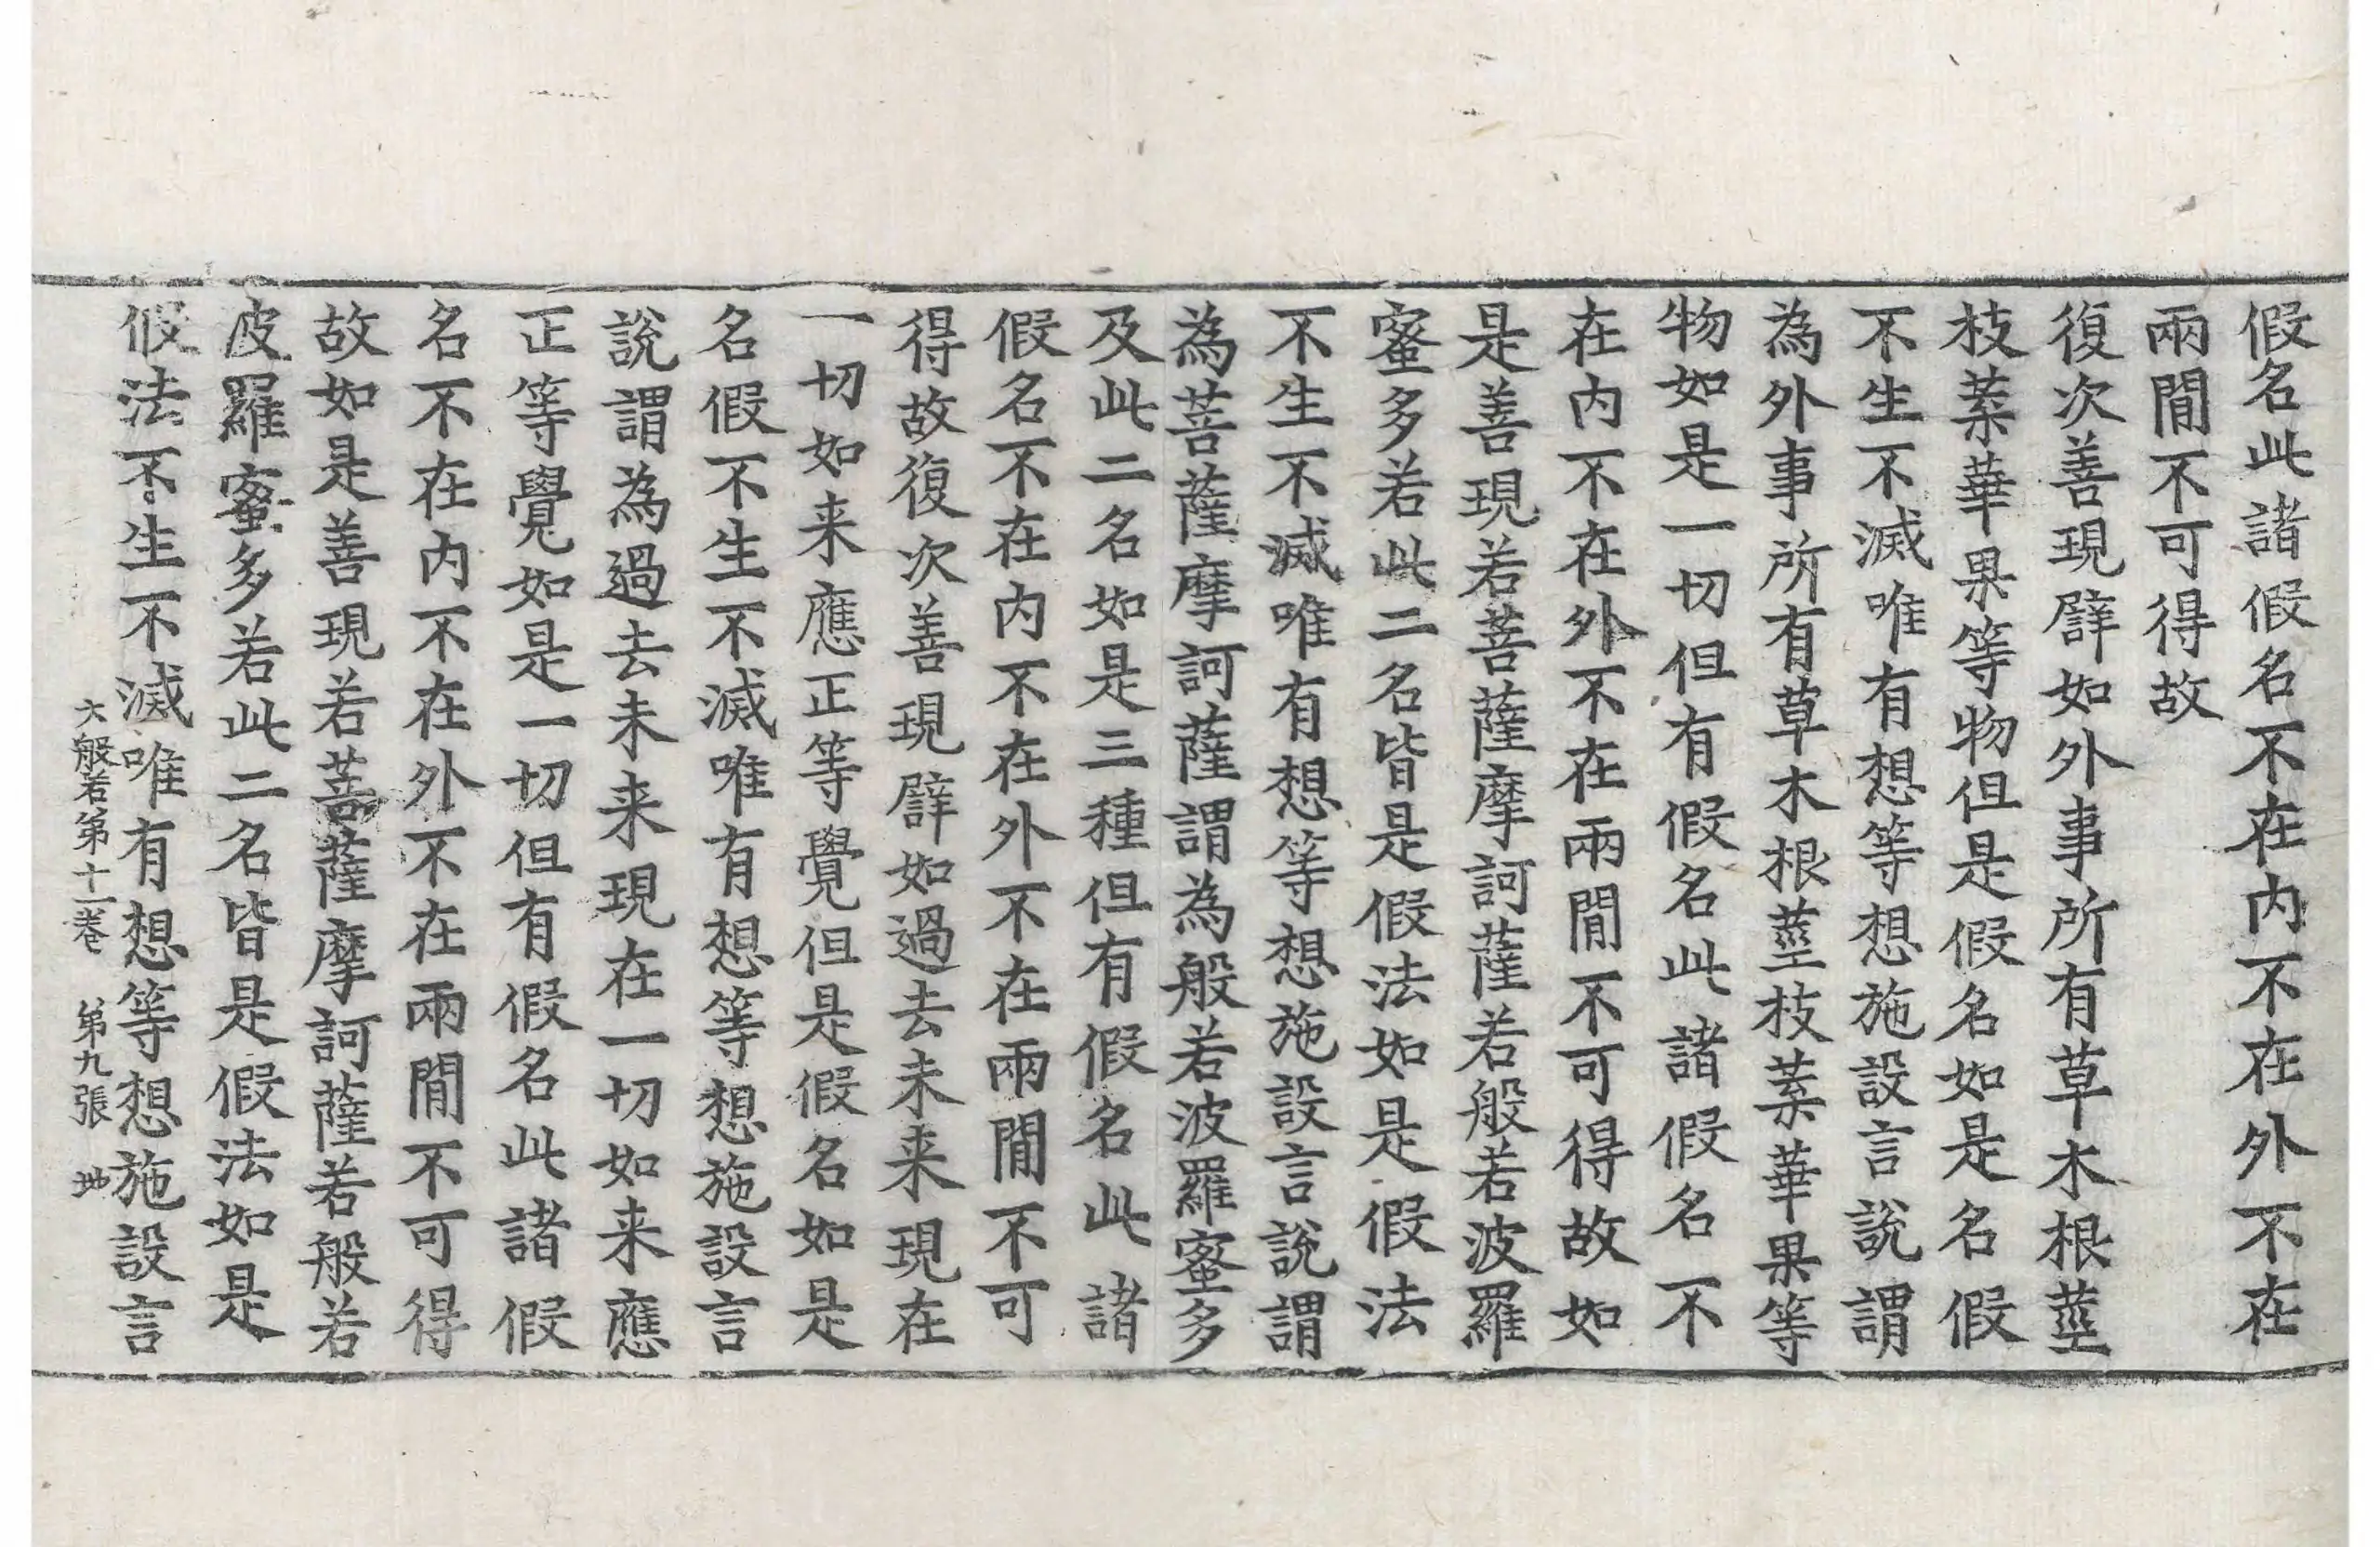 假名此諸假名不在内不在外不在
兩閒不可得故
復次善現譬如外事所有草木根莖
枝葉華果等物但是假名如是名假
不生不滅唯有想等想施設言說謂
為外事所有草木根莖枝葉華果等
物如是一切但有假名此諸假名不
在内不在外不在兩閒不可得故如
是善現若菩薩摩訶薩若般若波羅
蜜多若此二名皆是假法如是假法
不生不滅唯有想等想施設言說謂
為菩薩摩訶薩謂為般若波羅蜜多
及此二名如是三種但有假名此諸
假名不在内不在外不在兩閒不可
得故復次善現譬如過去未来現在
一切如来應正等覺但是假名如是
名假不生不滅唯有想等想施設言
說謂為過去未来現在一切如来應
正等覺如是一切但有假名此諸假
名不在内不在外不在兩閒不可得
故如是善現若菩薩摩訶薩若般若
波羅蜜多若此二名皆是假法如是
假法不生不滅唯有想等想施設言
大般若第十一卷 第九張 地